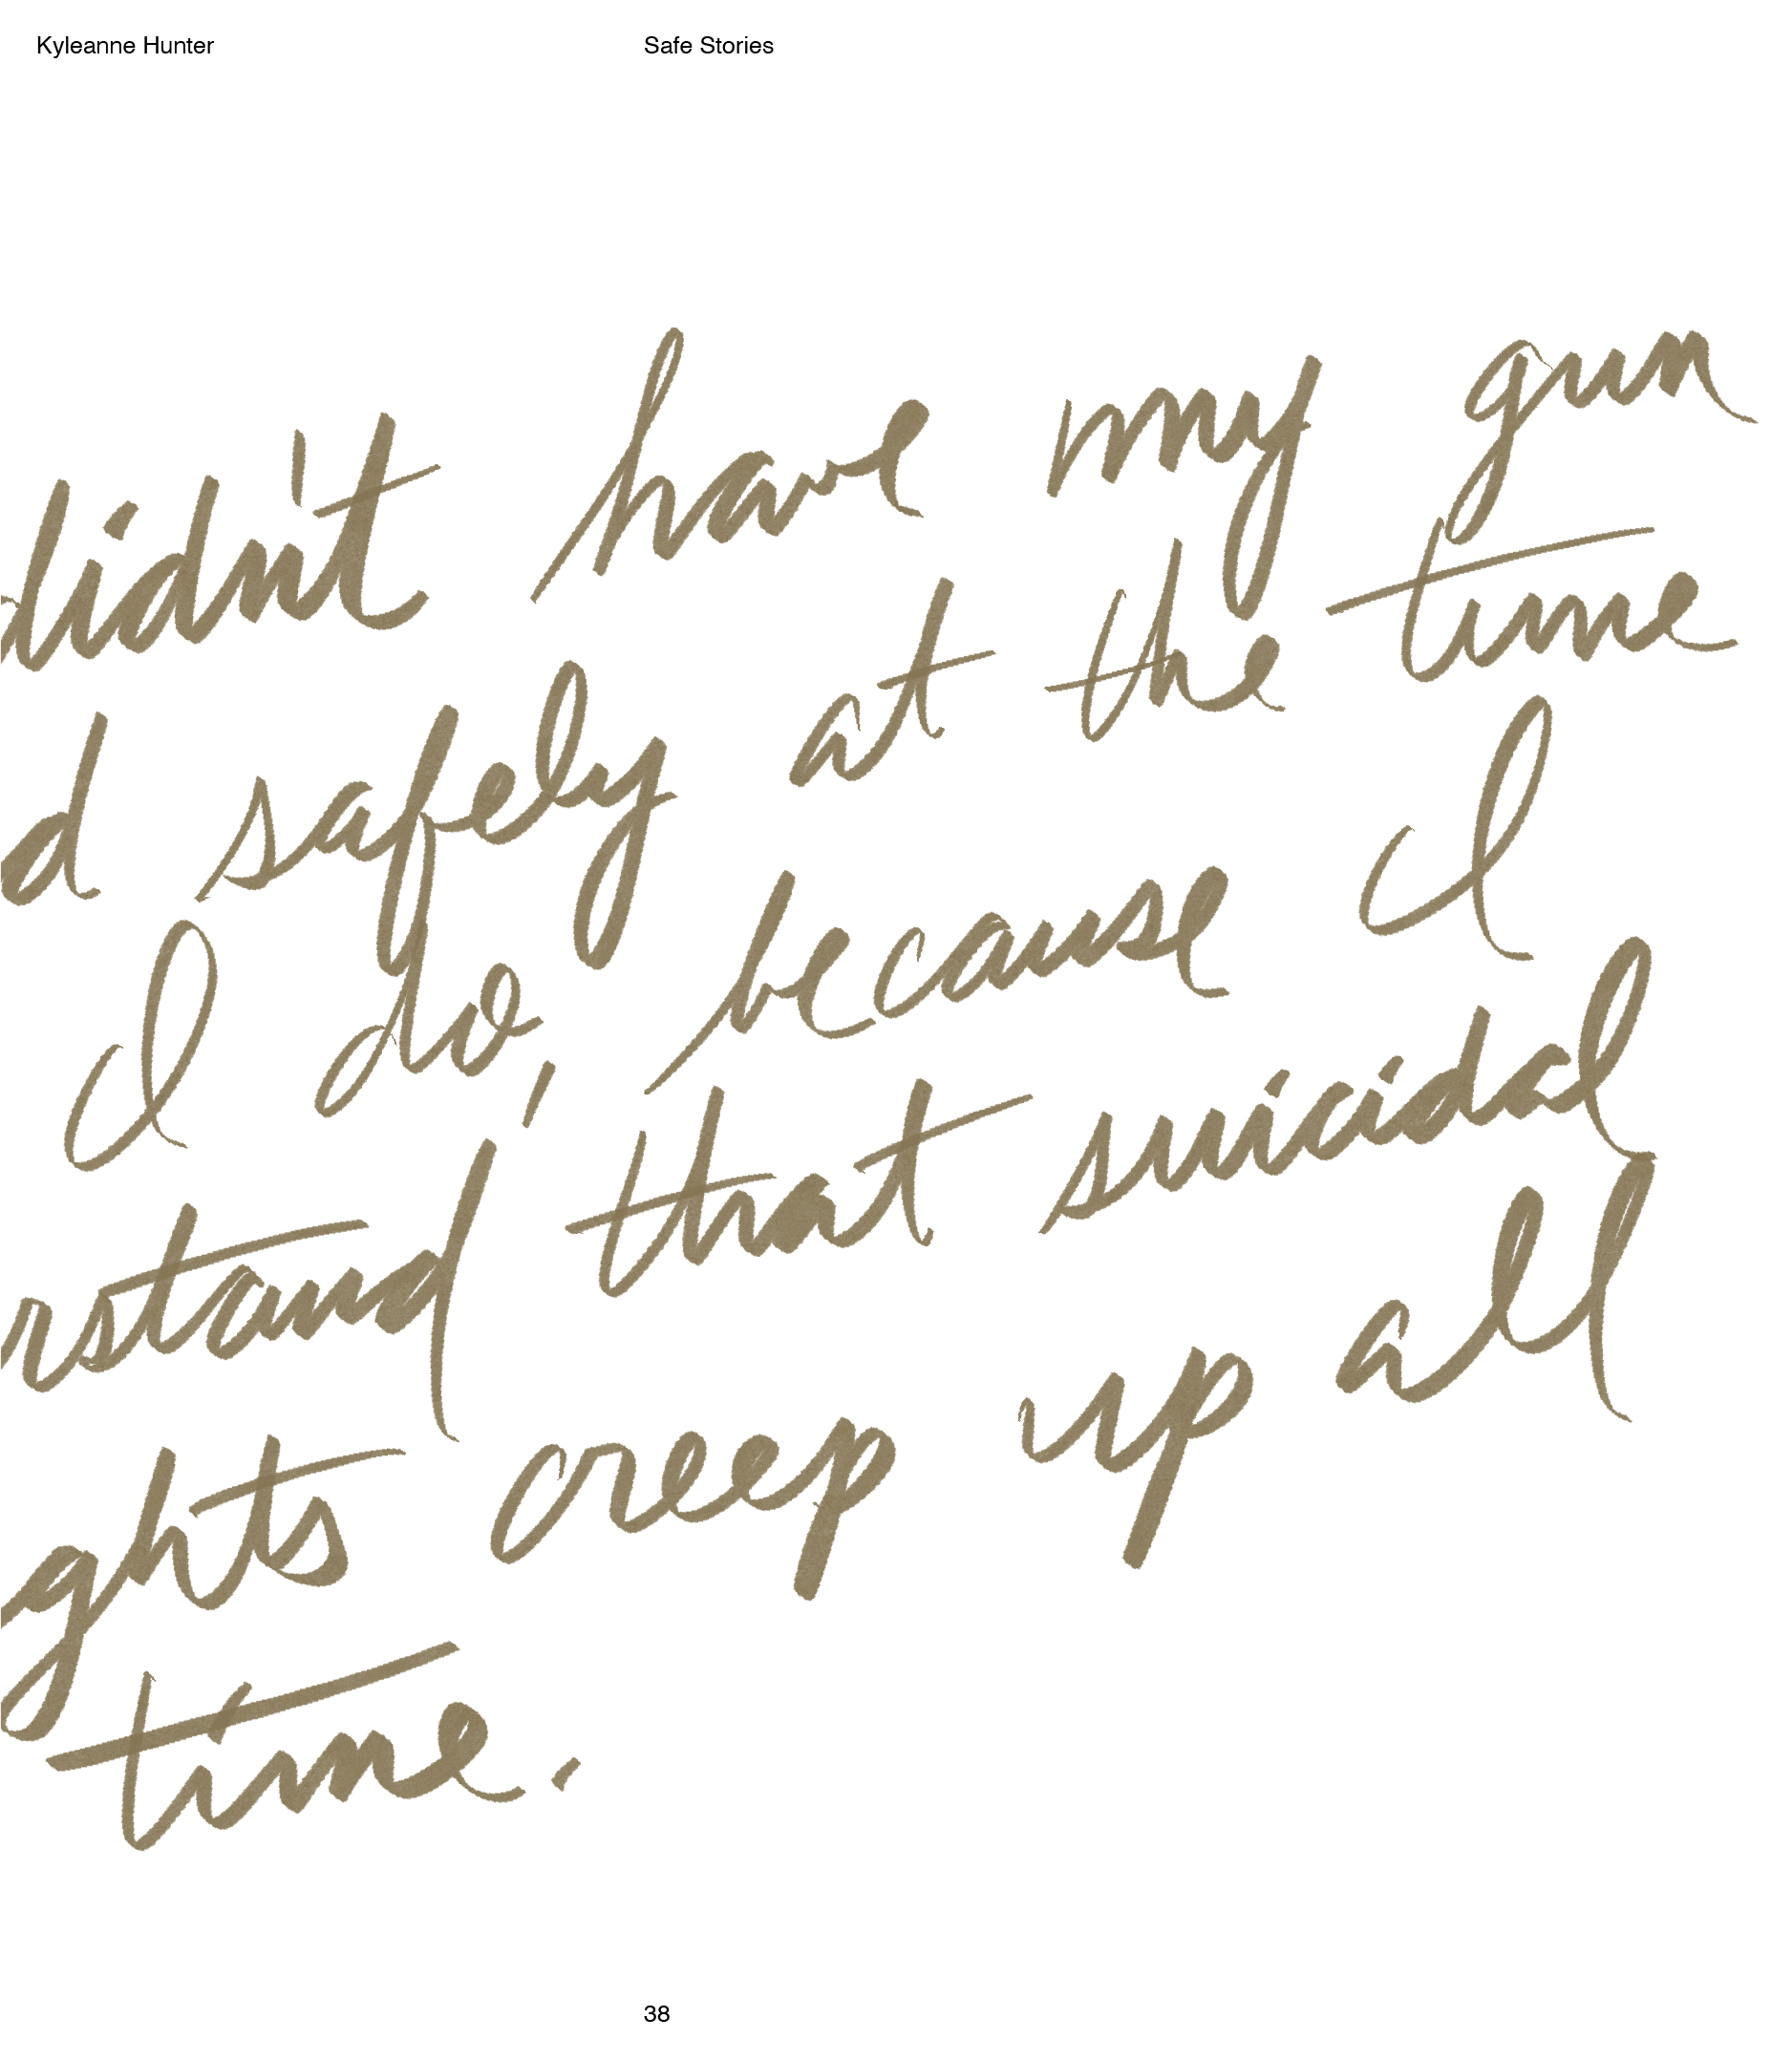 Kyleanne Hunter
Safe Stories
didn't have my gun
d safely at the time
I do, because I
rstand that suicidal
ghts creep up all
time.
38